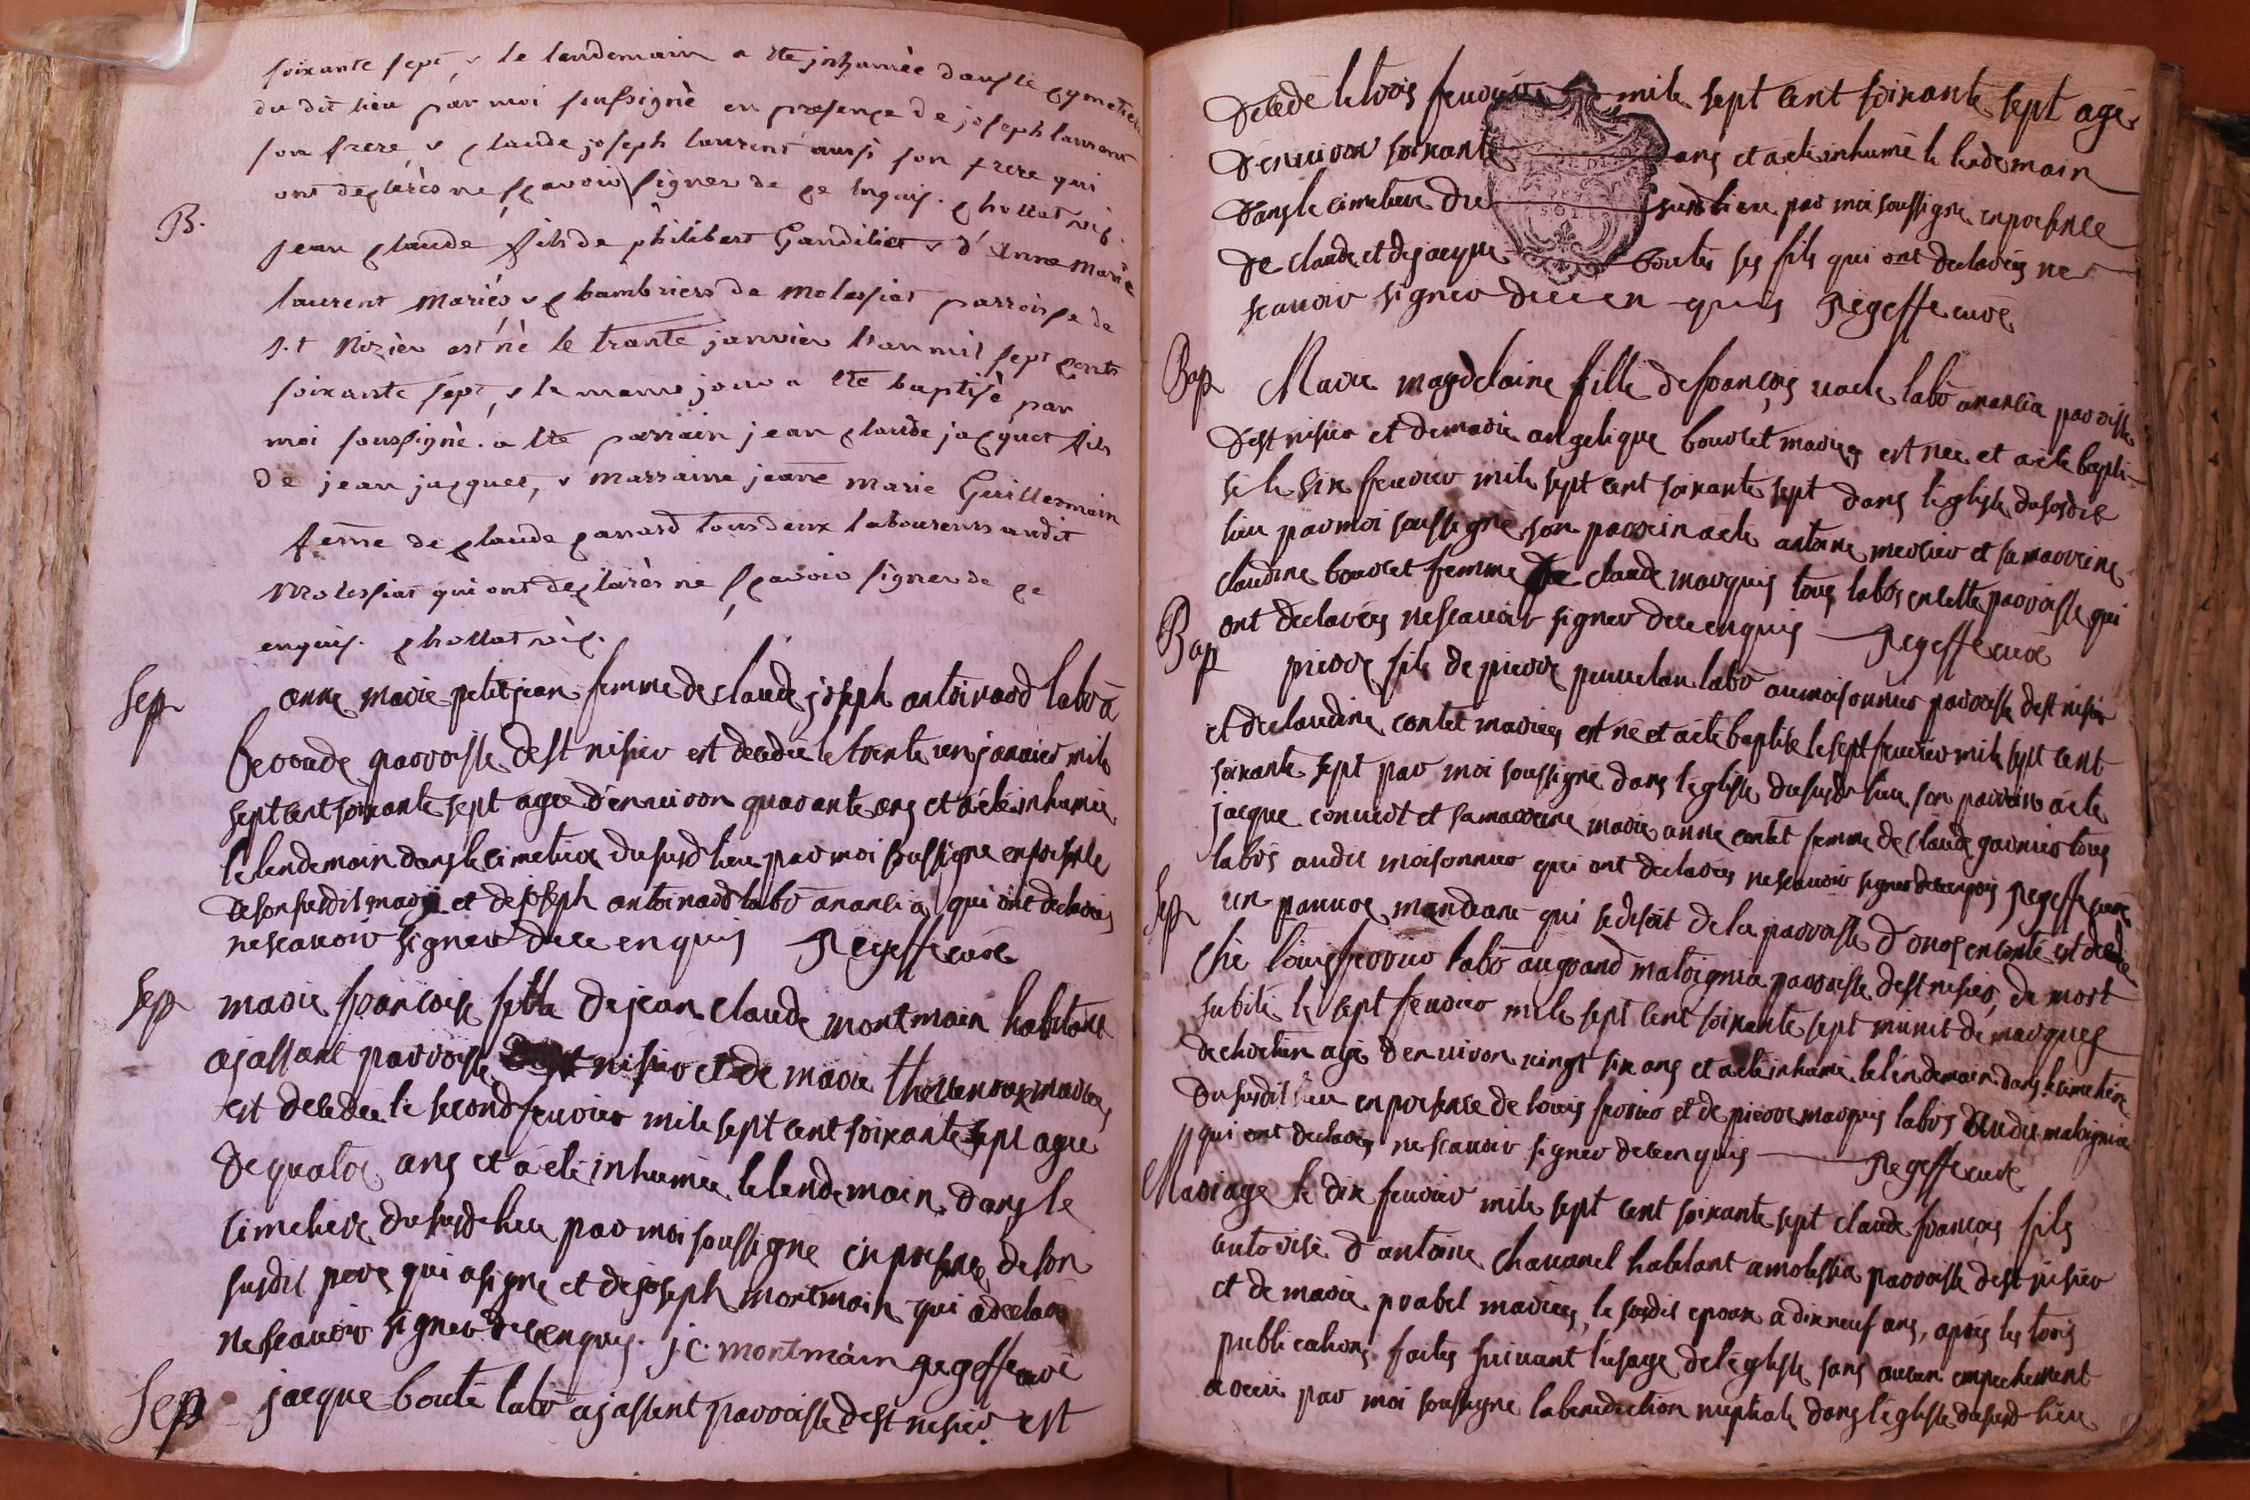 soixante sept, & le landemain a ete inhumée dans le cymetiere
du dit lieu par moi soussigné en presence de joseph laurent
son frere, & claude joseph laurent aussi son frere qui
ont declarés ne scavoir signer de ce enquis. chollat vic.
B.
jean claude fils de philibert Gandiliet & d'Anne Marie
laurent mariés, & chambriers de Molessiat parroisse de
s.t Nizier est né le trante janvier l'an mil sept cents
soixante sept, & le meme jour a ete baptisé par
moi soussigné. a ete parrain jean claude jacquet fils
de jean jacquet, & marraine jeanne marie Guillermain
feme de claude parrard tous deux laboureurs audit
Molessiat qui ont declarés ne scavoir signer de ce
enquis. chollat vic.
Sep
anne marie petitjean femme de claude joseph antoinard labor a
parroisse de st nisier est decedee le trente un janvier mile
sept cent soixante sept agee d'environ quarante ans et a été inhumée
le lendemain dans le cimetiere du susd lieu par moi soussigne en presence
de son susdit mary et de joseph antoinard labor a qui ont declarés
ne scavoir signer de ce enquis Regeffe curé
Sep
marie françoise fille de jean claude montmain habitant
a jassant parroisse de st nisier et de marie mariés
est decedee le second fevrier mile sept cent soixante sept agee
de quatre ans et a été inhumée le lendemain dans le
cimetiere du susd lieu par moi soussigne en presence de son
susdit pere qui a signe et de joseph montmain qui a declaré
ne scavoir signer de ce enquis. j c. montmain Regeffe curé
Sep
jacque bouté labor a jassent parroisse de st nisier est
decede le trois fevrier mile sept cent soixante sept agé
d'environ soixante ans et a été inhumé le lendemain
dans le cimetiere du susd lieu par moi soussigne en presence
de claude et de jacque boutés ses fils qui ont declarés ne
scavoir signer de ce enquis Regeffe curé
Bap
Marie magdelaine fille de françois vacle labor parroisse
de st nisier et de marie angelique bouvret mariés est née et a été bapti-
sé le six fevrier mile sept cent soixante sept dans l'eglise du susdit
lieu par moi soussigne son parrein a été antoine mercier et sa marreine
claudine bouvret femme de claude marquis tous labors en cette parroisse qui
ont declarés ne scavoir signer de ce enquis Regeffe curé
Bap
pierre fils de pierre labor au moisonnier parroisse de st nisier
et de claudine contet mariés est né et a été baptisé le sept fevrier mile sept cent
soixante sept par moi soussigné dans l'eglise du susd lieu son parrein a été
jacque convert et sa marreine marie anne contet femme de claude garnier tous
labors audit moisonnier qui ont declarés ne scavoir signer de ce enquis Regeffe curé
Sep
un pauvre mendiant qui se disoit de la parroisse d'onos en comté est decede
ché louis ferrier labor au grand maloignia parroisse de st nisier, de mort
subite le sept fevrier mile sept cent soixante sept munit de marques
de chretien agé d'environ vingt six ans et a été inhumé le lendemain dans le cimetiere
du susdit lieu en presence de louis ferrier et de pierre marquis labors dudit maloignia
qui ont declarés ne scavoir signer de ce enquis Regeffe curé
Mariage
le dix fevrier mile sept cent soixante sept claude françois fils
autorisé d'antoine chavanel habitant a molessia parroisse de st nisier
et de marie prabel mariés, le susdit epoux a dix neuf ans, après les trois
publications faites suivant l'usage de l'eglise sans aucun empechement
a receu par moi soussigne la benediction nuptiale dans l'eglise du susd lieu